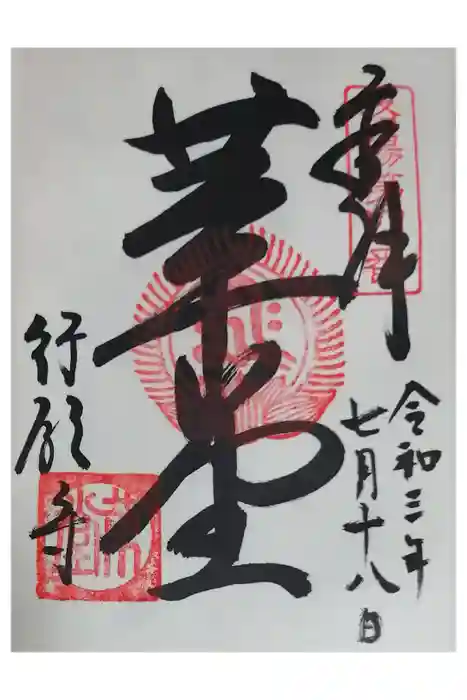 奉拝
令和三年
七月十八日
華堂
行願寺